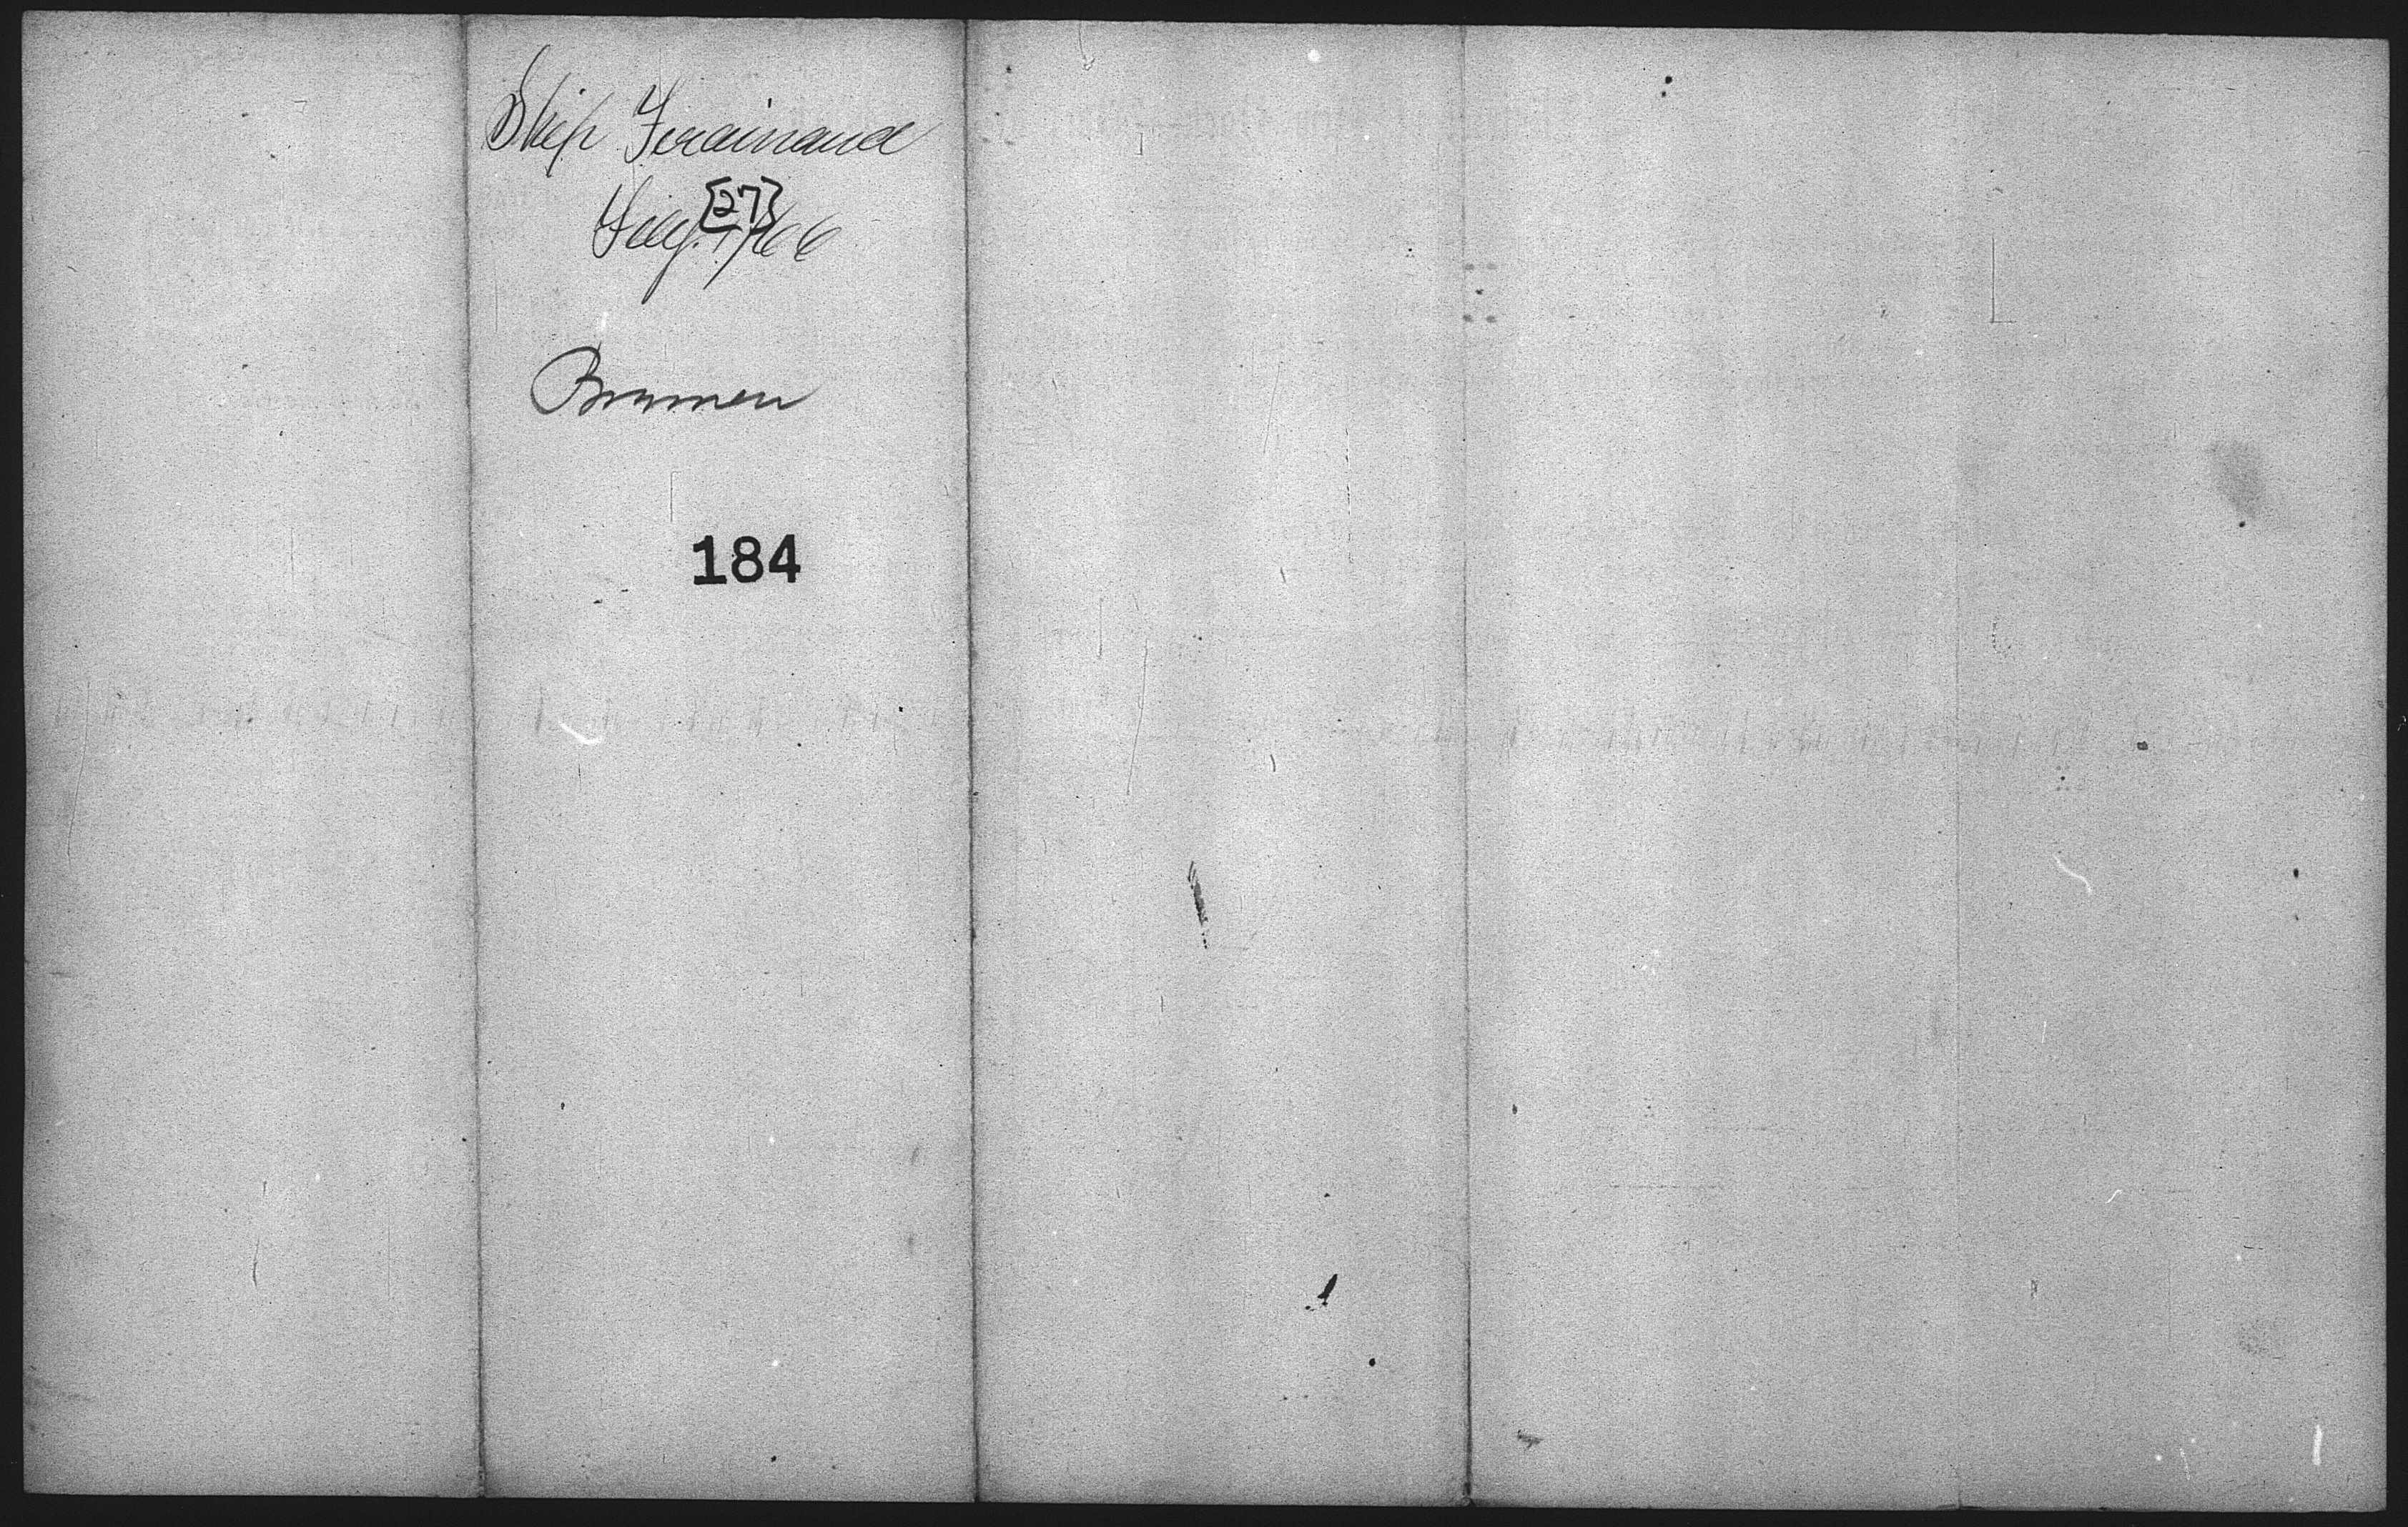 Ship Ferdinand
[27]
/66
Bremen
184